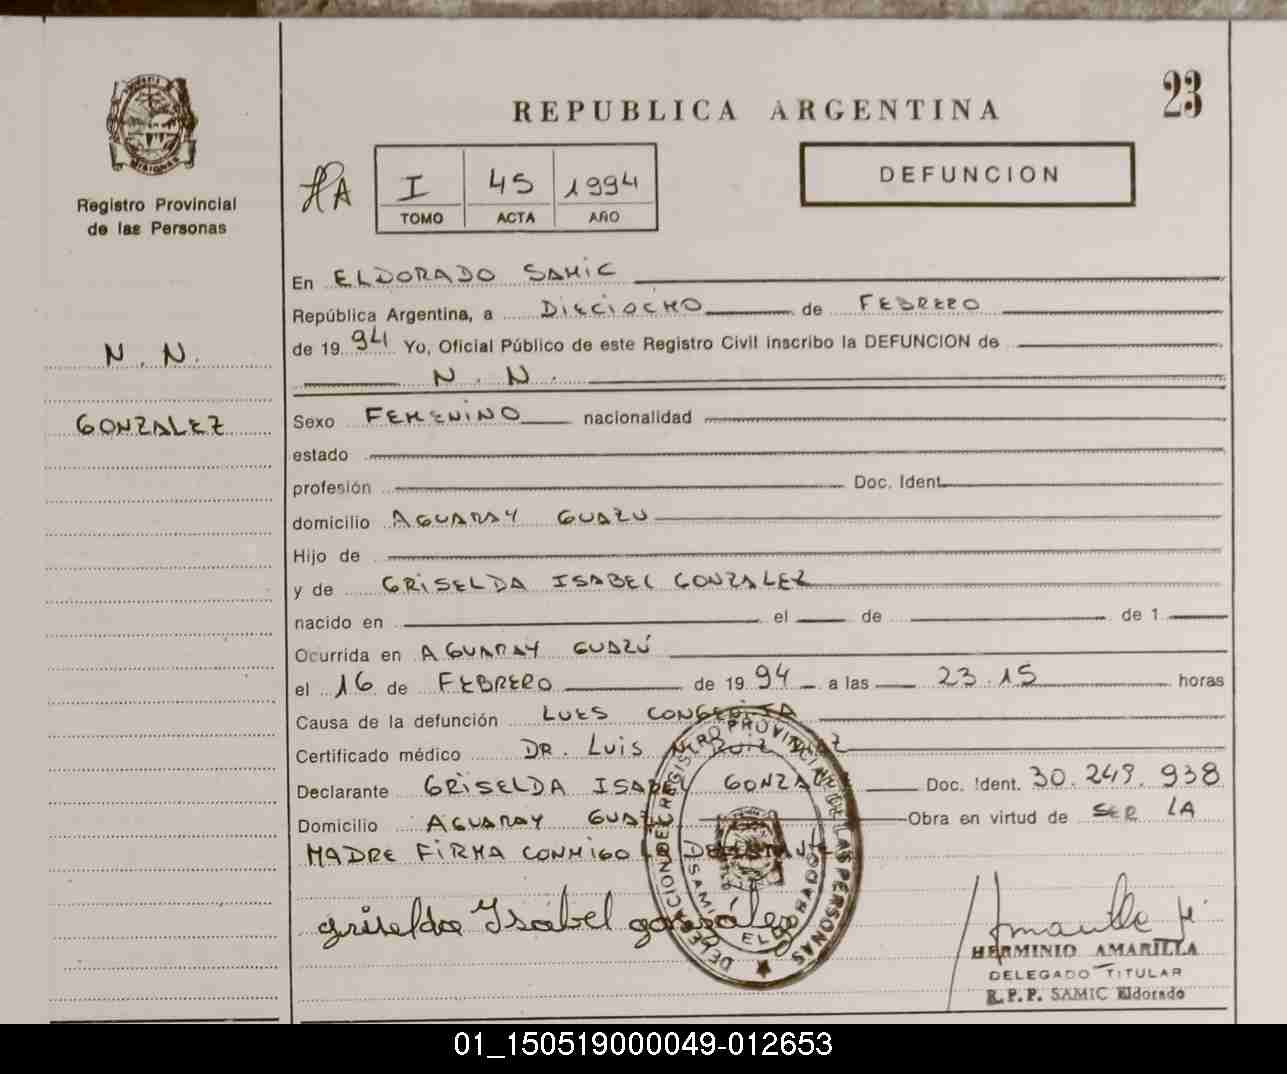 REPUBLICA ARGENTINA
23
MISIONES
Registro Provincial
de las Personas
I 45 1994
TOMO ACTA AÑO
DEFUNCION
N. N.
GONZALEZ
En ELDORADO SAMIC
República Argentina, a DIECIOCHO de FEBRERO
de 1994 Yo, Oficial Público de este Registro Civil inscribo la DEFUNCION de
N. N.
Sexo FEMENINO nacionalidad
estado
profesión Doc. Ident.
domicilio AGUARAY GUAZU
Hijo de
y de GRISELDA ISABEL GONZALEZ
nacido en el de de 1
Ocurrida en AGUARAY GUAZÚ
el 16 de FEBRERO de 1994 a las 23.15 horas
Causa de la defunción LUES CONGENITA
Certificado médico DR. LUIS
Declarante GRISELDA ISABEL GONZALEZ Doc. Ident. 30.249.938
Domicilio AGUARAY GUAZU Obra en virtud de SER LA
MADRE FIRMA CONMIGO
griselda Isabel gonzález
DELEGACION DEL REGISTRO PROVINCIAL DE LAS PERSONAS
SAMIC
ELDORADO
HERMINIO AMARILLA
DELEGADO TITULAR
R.P.P. SAMIC Eldorado
01_150519000049-012653